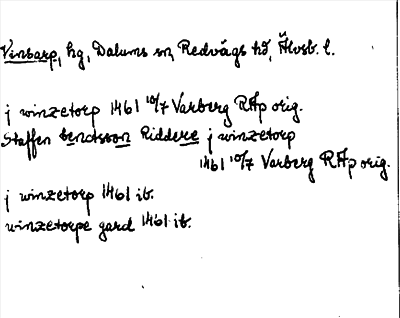 Vinsarp, hg, Dalums sn, Redvägs hd, Älvsb. l.
j winzetorp 1461 10/7 Varberg RAp orig.
Staffen bendtsson Riddere j winzetorp
1461 10/7 Varberg RAp orig.
j winzetorp 1461 ib.
winzetorpe gard 1461 ib.